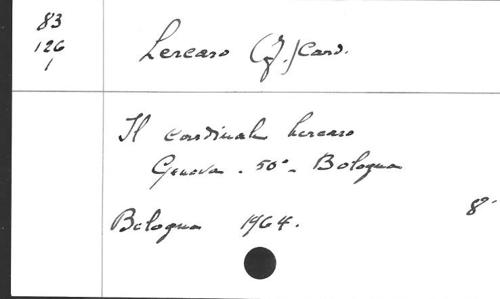 83
126
1
Lercaro (G.) Card.
Il cardinale Lercaro
Genova - 50° - Bologna
Bologna 1964.
8°